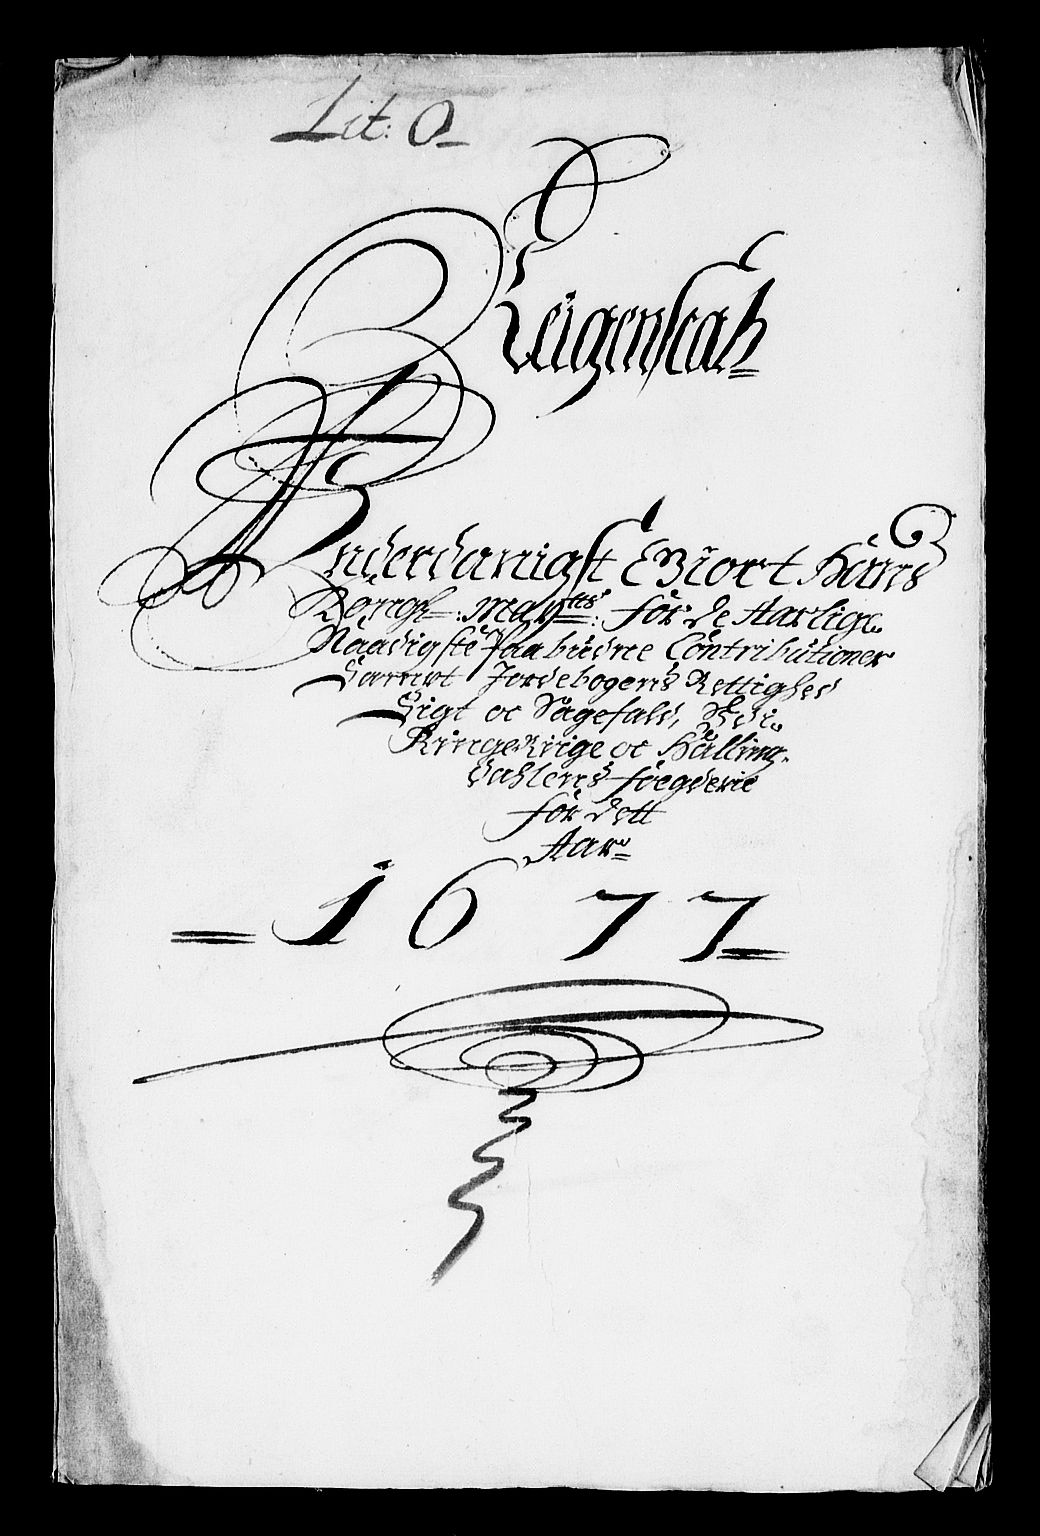 Lit: O
Reigenskab
Underdanigst Giort Hans
Kongl: May:tts: for de Aarlige
Naadigste Paabudne Contributioner
Sampt Jordebogens Rettighed
Sigt oc Sagefald, Udi
RingeRiige oc Halling-
dahlens foegderie
for dett
Aar
1677